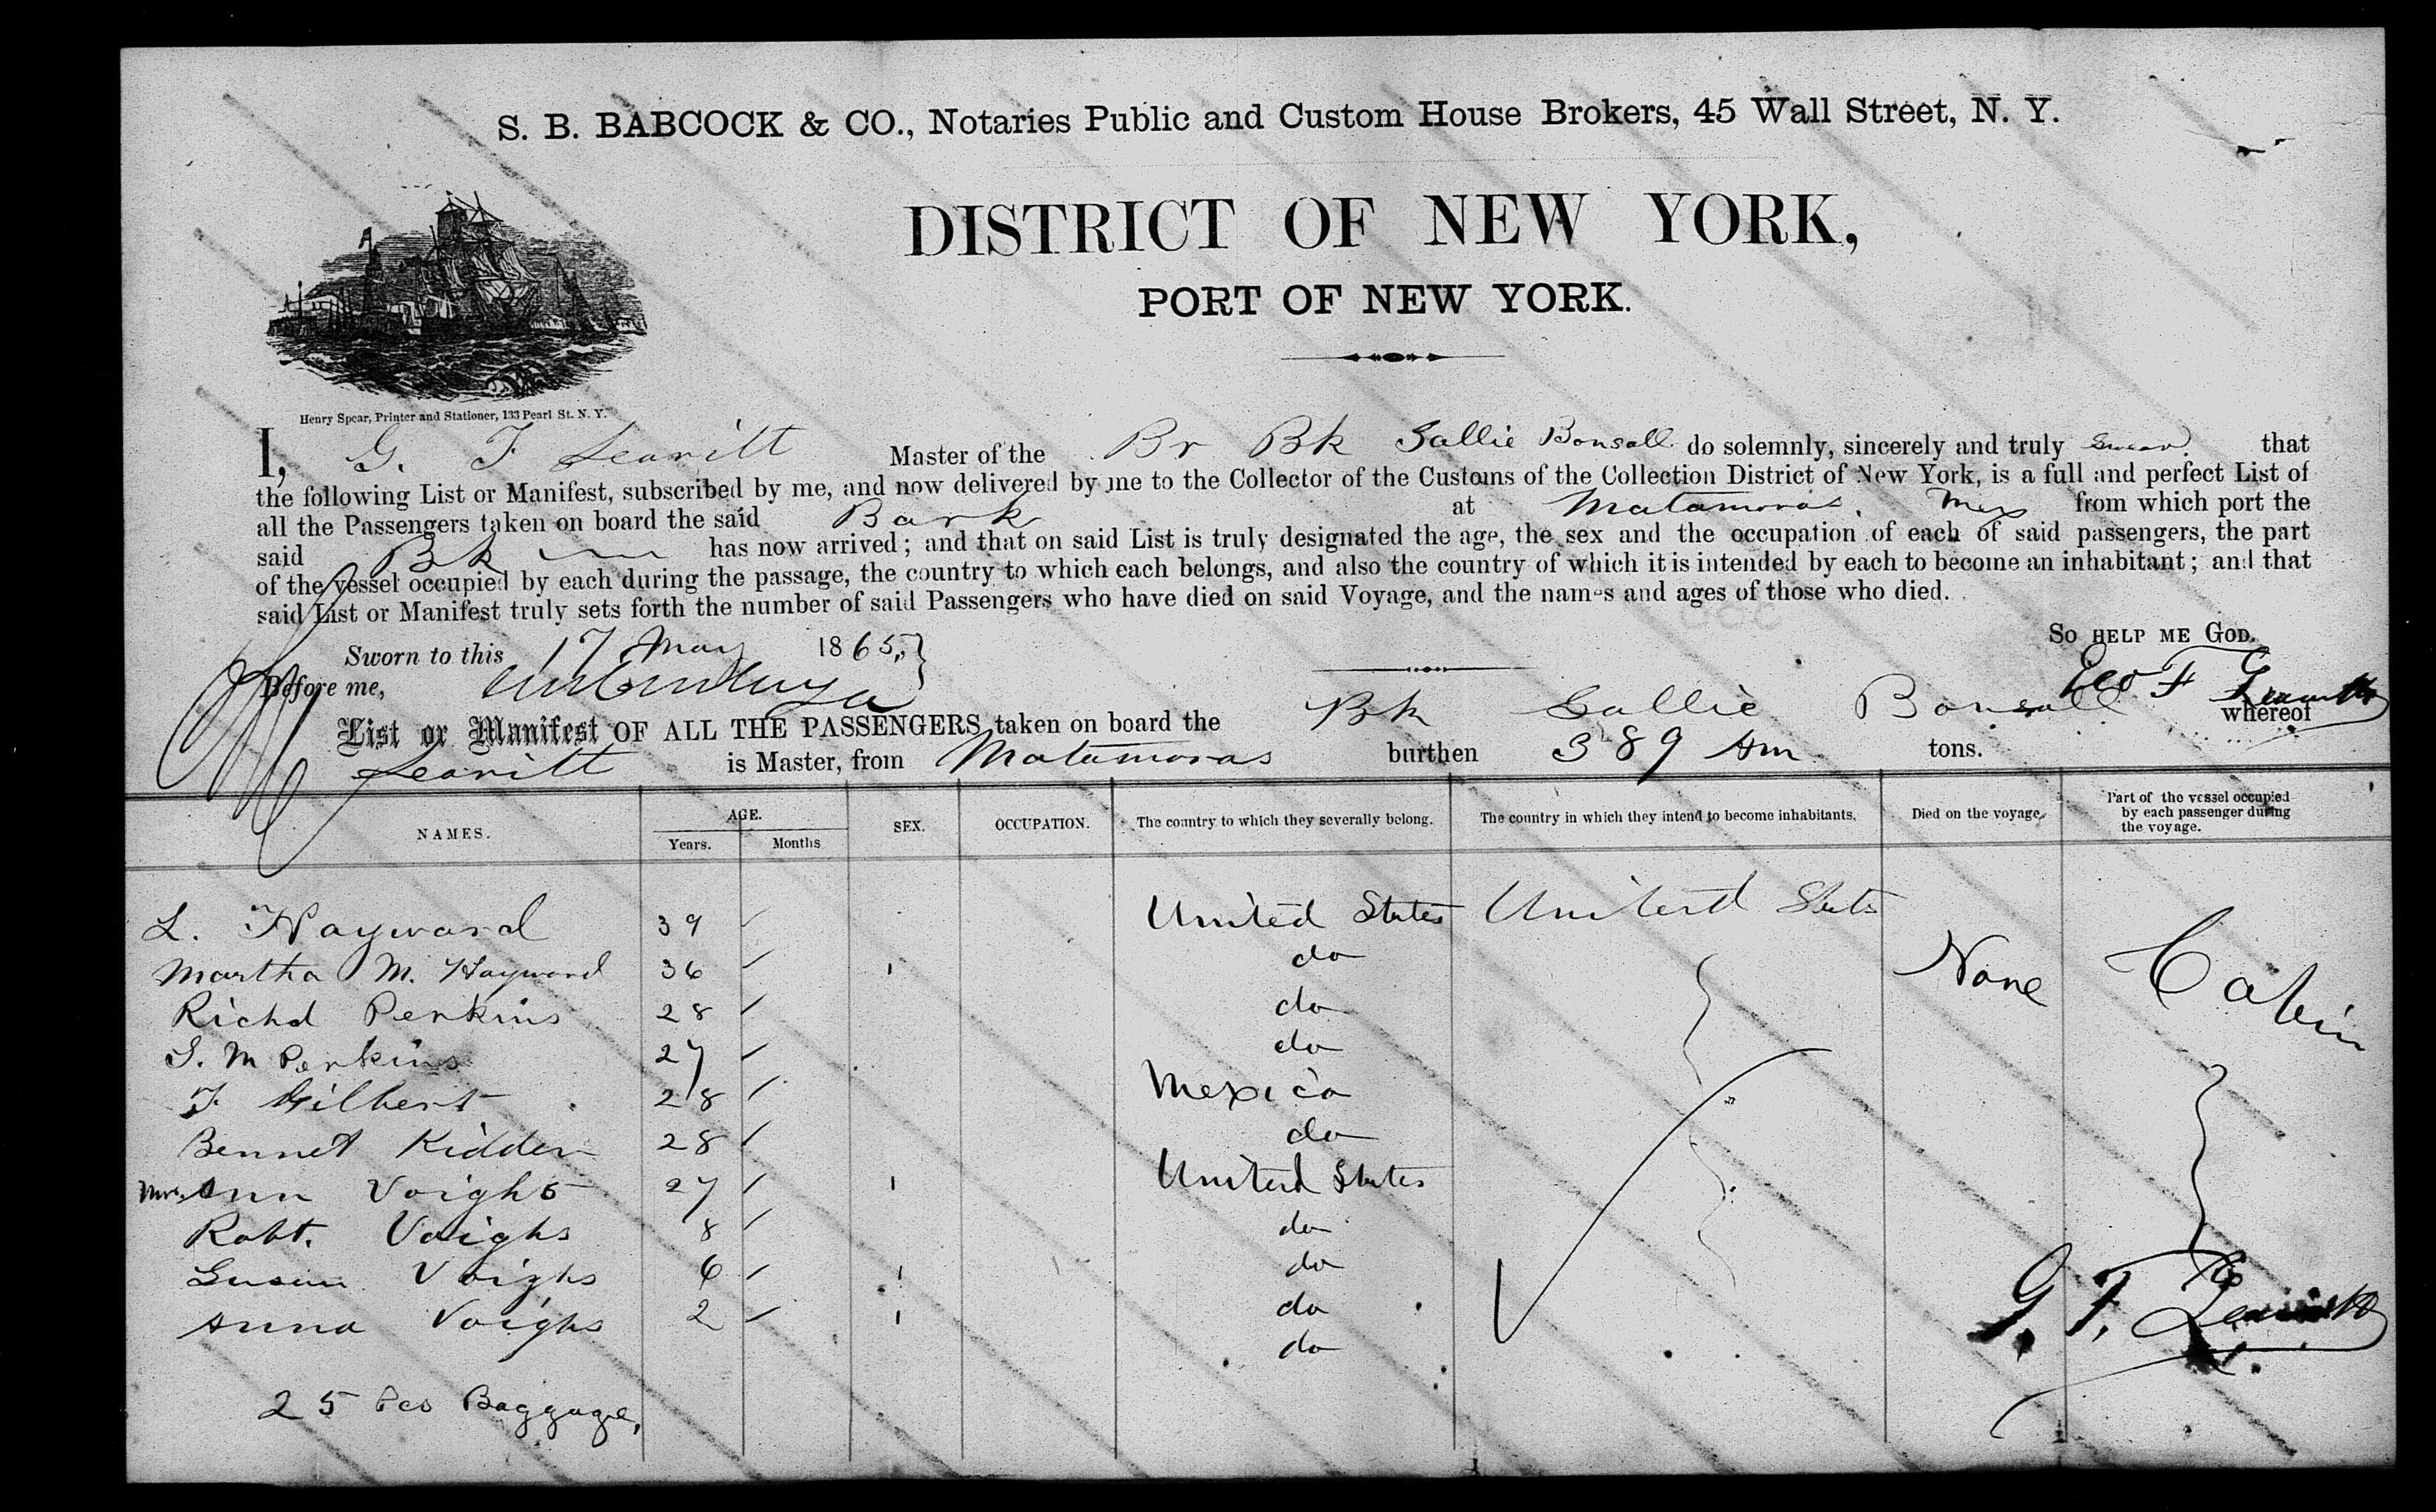 S. B. BABCOCK & CO., Notaries Public and Custom House Brokers, 45 Wall Street, N. Y.
DISTRICT OF NEW YORK,
PORT OF NEW YORK.
Henry Spear, Printer and Stationer, 133 Pearl St. N. Y.
I, G. F Leavitt Master of the Br Bk Sallie Bonsall do solemnly, sincerely and truly swear that
the following List or Manifest, subscribed by me, and now delivered by me to the Collector of the Customs of the Collection District of New York, is a full and perfect List of
all the Passengers taken on board the said Bark at Matamoras, Mex from which port the
said Bk has now arrived; and that on said List is truly designated the age, the sex and the occupation of each of said passengers, the part
of the vessel occupied by each during the passage, the country to which each belongs, and also the country of which it is intended by each to become an inhabitant; and that
said List or Manifest truly sets forth the number of said Passengers who have died on said Voyage, and the names and ages of those who died.
SO HELP ME GOD.
Sworn to this 17 May 1865,
Before me,
Geo F Leavitt
List or Manifest OF ALL THE PASSENGERS taken on board the Bk Sallie Bonsall whereof
Leavitt is Master, from Matamoras burthen 389 Am tons.
NAMES. AGE. Years. Months SEX. OCCUPATION. The country to which they severally belong. The country in which they intend to become inhabitants. Died on the voyage. Part of the vessel occupied by each passenger during the voyage.
L. Hayward 39 United States United States
Martha M. Hayward 36 do None Cabin
Richd Perkins 28 do
S. M Perkins 27 do
F Gilbert 28 Mexico
Bennet Kidder 28 do
Mrs. Ann Voighs 27 United States
Robt. Voighs 8 do
Susan Voighs 6 do
Anna Voighs 2 do
do
G. F. Leavitt
25 Pcs Baggage,